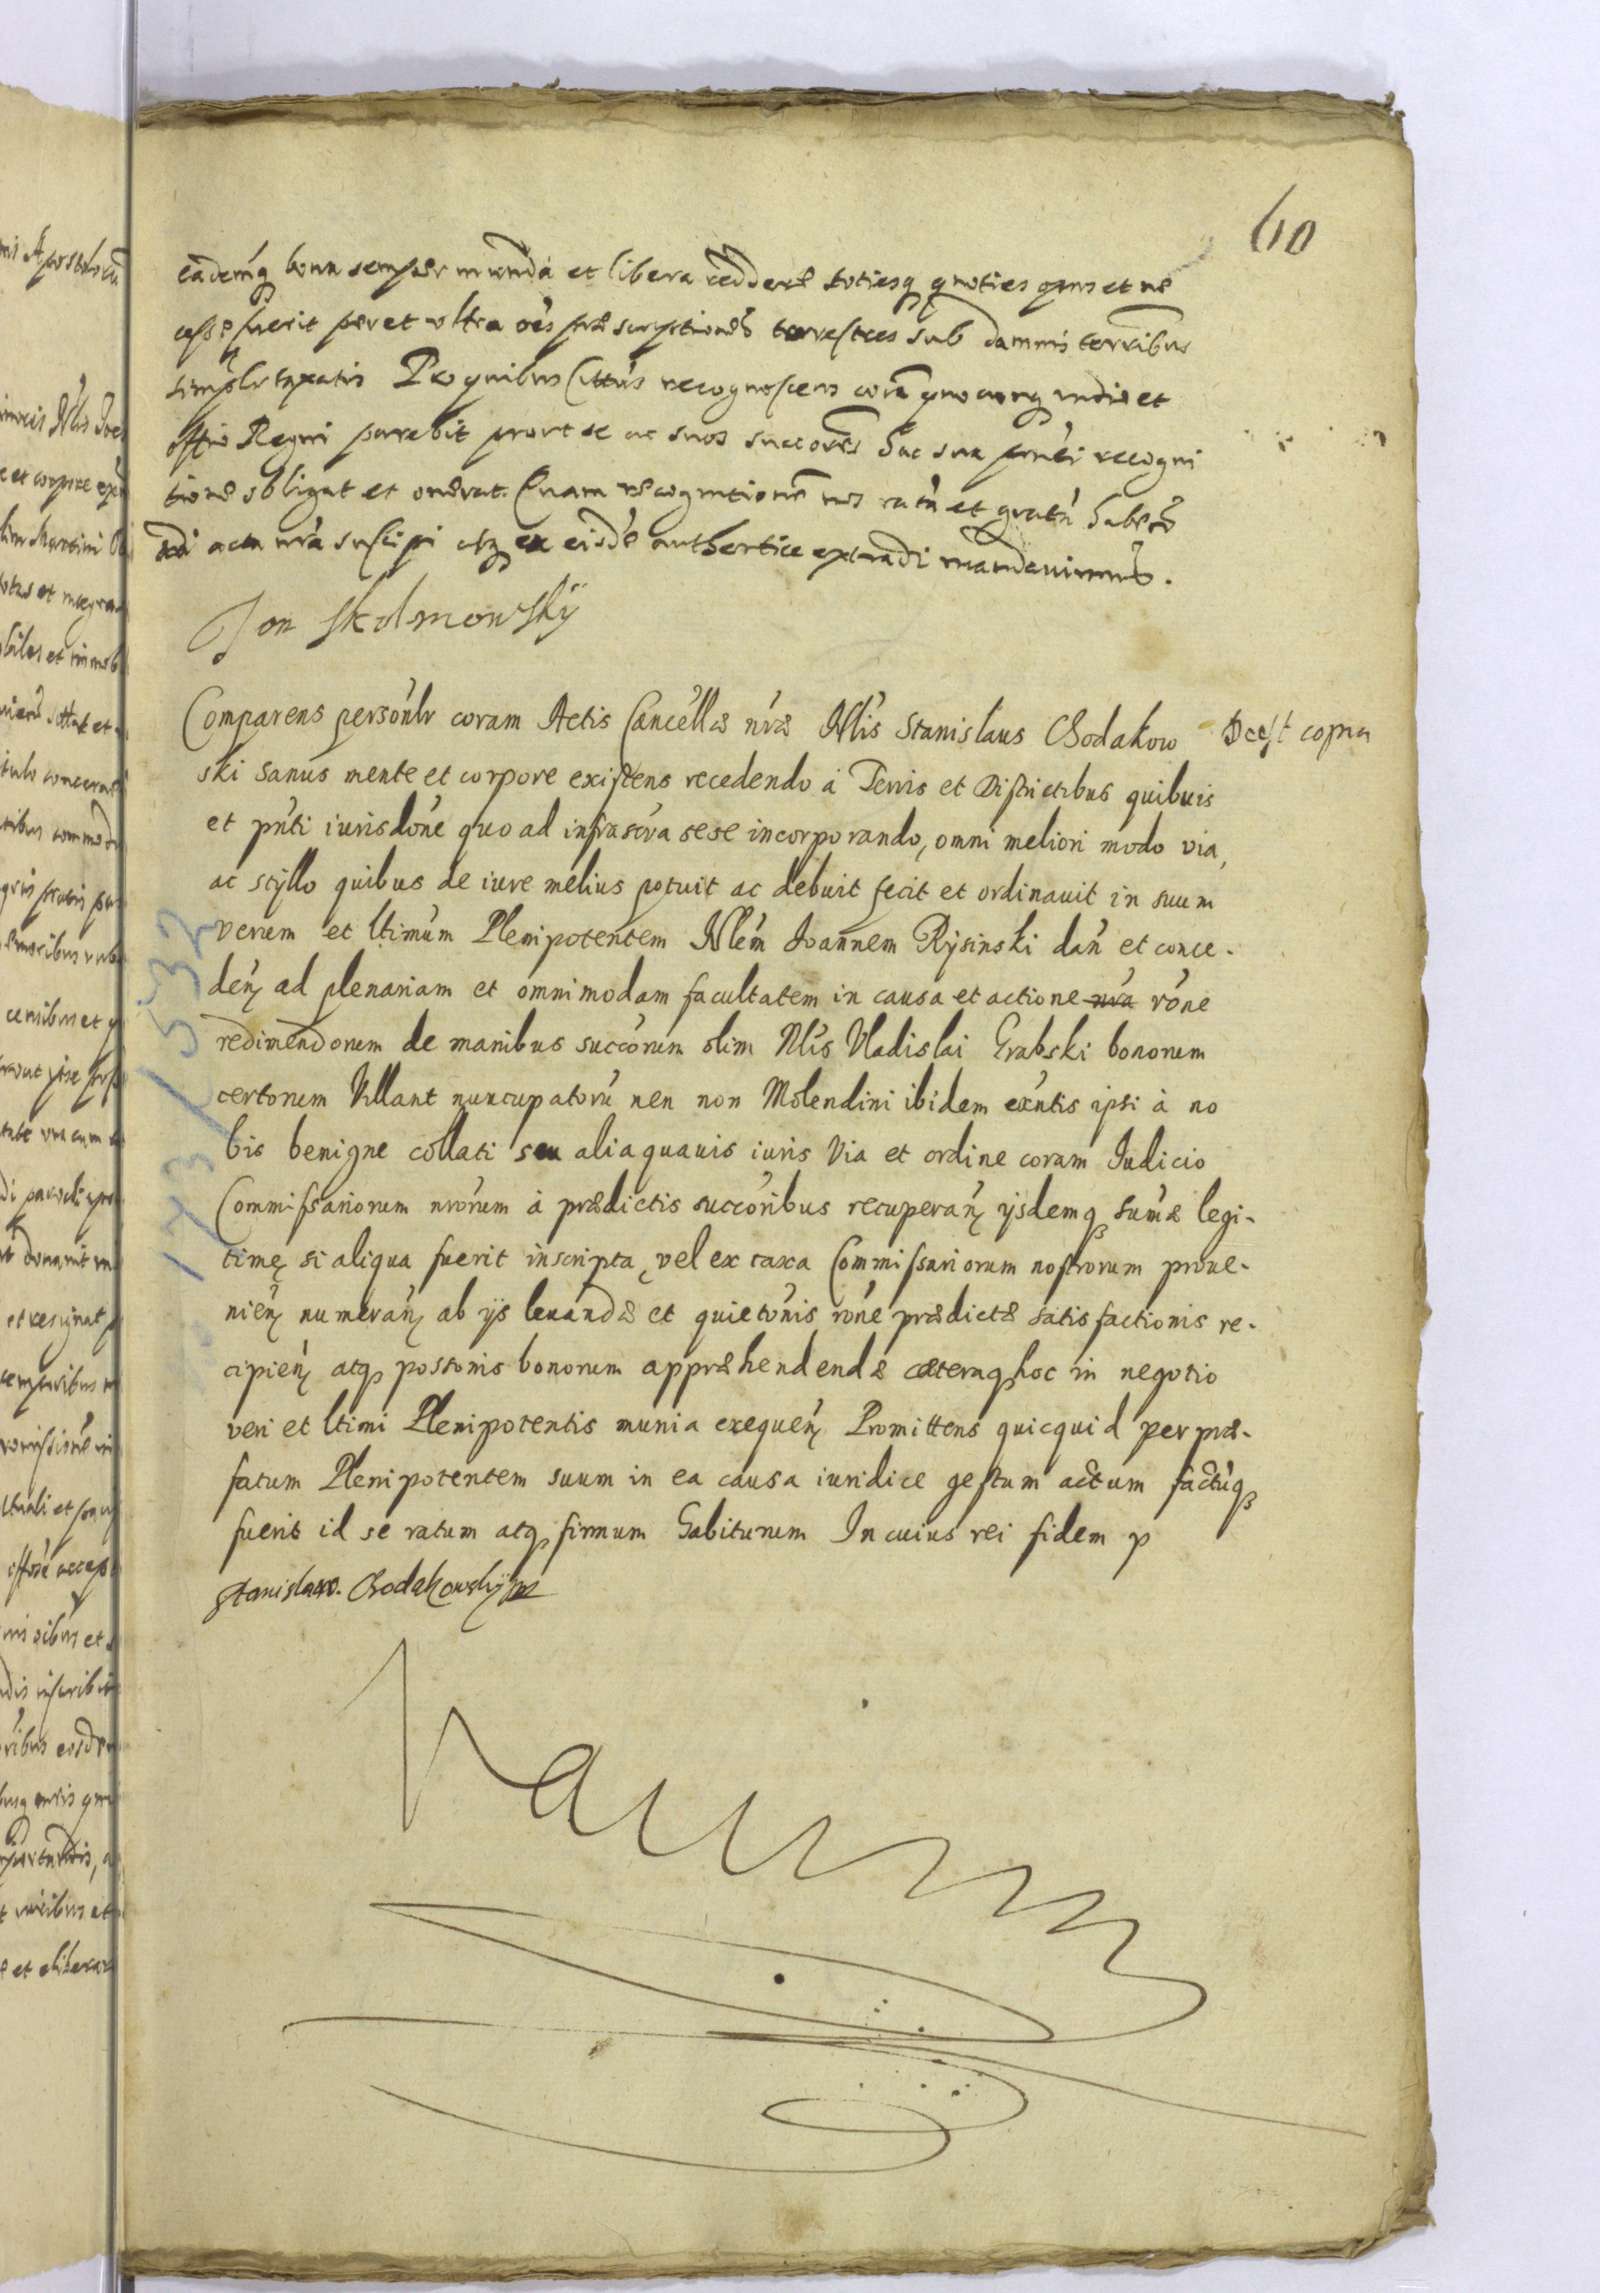 60
eadémq bona semper munda et libera reddere totiesq quoties opus et ne
cesse fuerit per et ultra oēs præscriptiones terrestres sub damnis terribus
simplr taxatis Pro quibus Cittus recognoscens corā quocunq iudio et
offio Regni parebit prout se ac suos succores hac sua pnti recogni
tione obligat et onerat. Quam recognitionē nos ratā et gratā habētes
ad acta nrā suscipi atq ex eisdē authentice extradi mandavimus.
Jan Skolmowskÿ
Comparens personlr coram Actis Cancellæ nræ Nblis Stanislaus Chodakow
Deest copia
ski sanus mente et corpore existens recedendo à Terris et Districtibus quibuis
et pnti iurisdōne quo ad infrascra sese incorporando, omni meliori modo via,
ac stÿllo quibus de iure melius potuit ac debuit fecit et ordinauit in suum
verum et ltimum Plenipotentem Nblem Joannem Rÿsinski dan et conce-
den ad plenariam et omnimodam facultatem in causa et actione nra rōne
redimendorum de manibus succorum olim Nblis Vladislai Grabski bonorum
certorum Villant nuncupatorū nen non Molendini ibidem exntis ipsi à no
bis benigne collati seu alia quauis iuris via et ordine coram Iudicio
Commissariorum nrorum à prædictis succoribus recuperan ijsdemq sumæ legi-
time si aliqua fuerit inscripta, vel ex taxa Commissariorum nostrorum proue-
nien numeran ab ijs leuandæ et quietonis rōne prædictæ satisfactionis re-
cipien atq possonis bonorum appræhendendæ cæteraq hoc in negotio
veri et ltimi Plenipotentis munia exequen Promittens quicquid per præ-
fatum Plenipotentem suum in ea causa iuridice gestum actum factuq
fuerit id se ratum atq firmum habiturum In cuius rei fidem p
Stanislaw. Chodakowskÿ